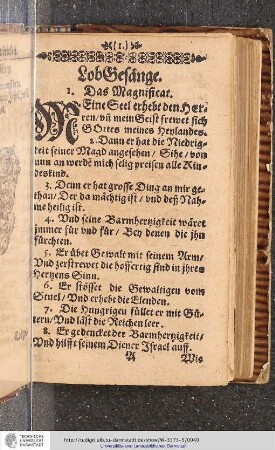 (1.)
LobGesänge.
1. Das Magnificat.
MEine Seel erhebt den Her-
ren / vñ mein Geist frewet sich
GOttes meines Heylandes.
2. Dann er hat die Niedrig-
keit seiner Magd angesehen / Sihe / von
nun an werdē mich selig preisen alle Kin-
deskind.
3. Denn er hat grosse Ding an mir ge-
than / Der da mächtig ist / und deß Nah-
me heilig ist.
4. Und seine Barmhertzigkeit wäret
immer für und für / Bey denen die jhn
fürchten.
5. Er übet Gewalt mit seinem Arm /
Und zerstrewet die hoffertig sind in jhres
Hertzens Sinn.
6. Er stösset die Gewaltigen vom
Stuel / Und erhebt die Elenden.
7. Die Hungrigen füllet er mit Gü-
tern / Und läst die Reichen leer.
8. Er gedencket der Barmhertzigkeit /
Und hilfft seinem Diener Israel auff.
A Wie
TECHNISCHE
UNIVERSITÄT
DARMSTADT
Universitäts- und Landesbibliothek Darmstadt